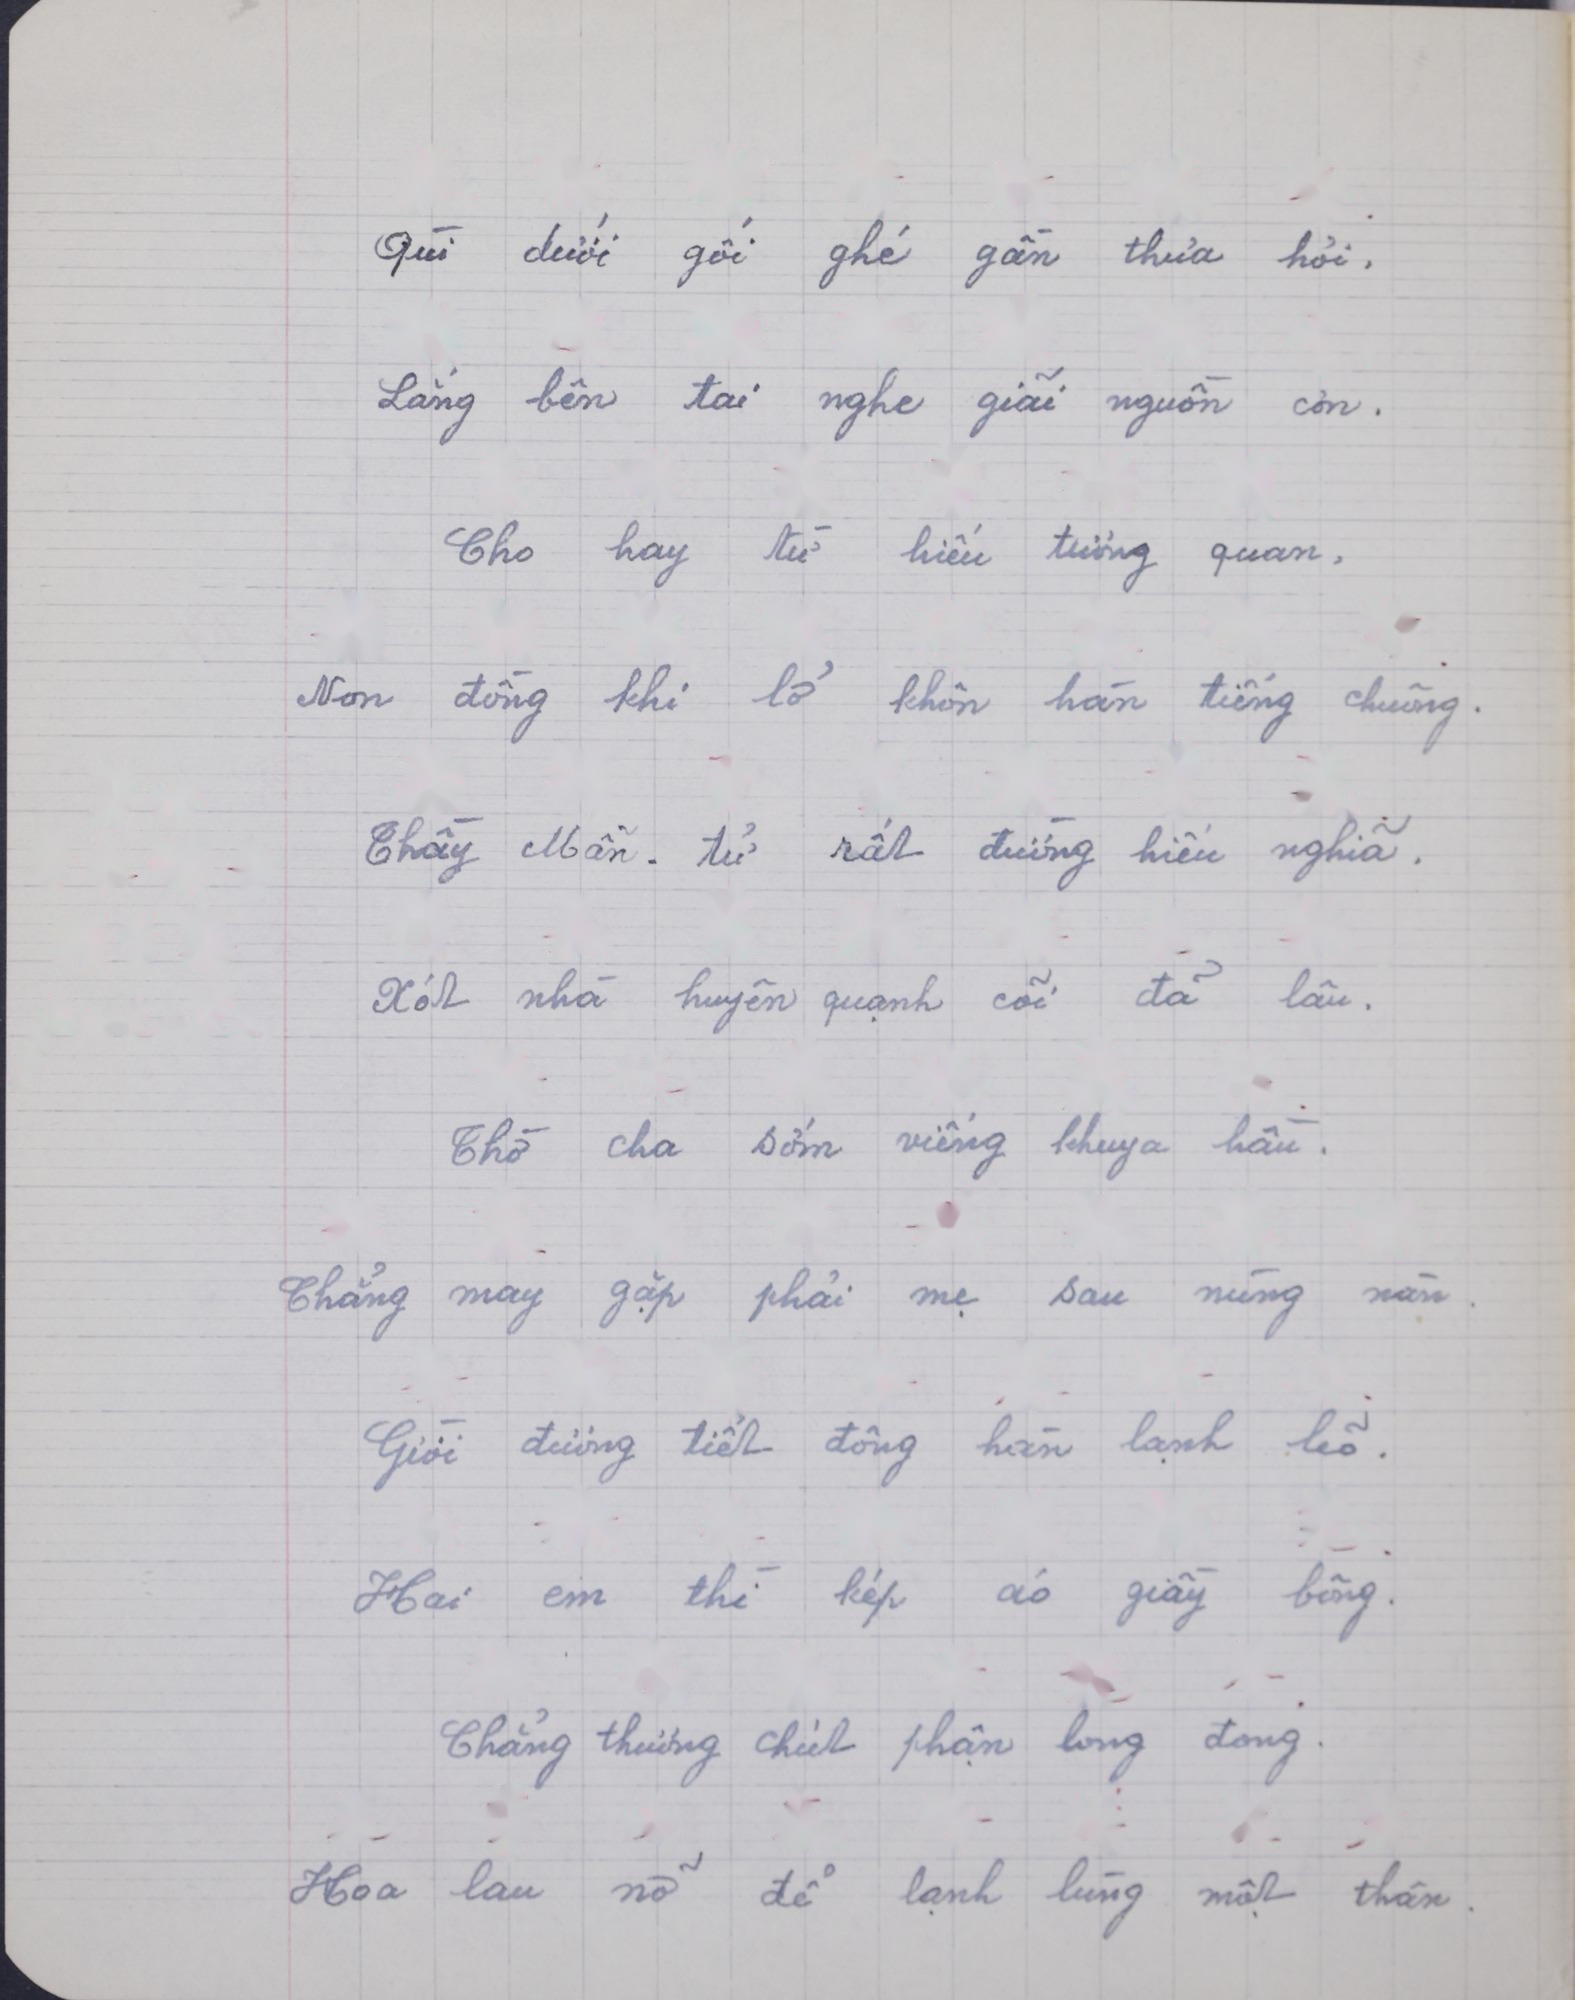 Quì dưới gối ghé gần thưa hỏi,
Lắng bên tai nghe giãi nguồn cơn.
Cho hay từ hiếu tương quan,
Non đồng khi lở khôn hàn tiếng chuông.
Thầy Mẫn-tử rất đường hiếu nghĩa.
Xót nhà huyên quạnh cõi đã lâu.
Thờ cha sớm viếng khuya hầu.
Chẳng may gặp phải mẹ sau nừng nàn.
Giời đương tiết đông hàn lạnh lẽo.
Hai em thì kép áo giầy bông.
Chẳng thương chút phận long đong.
Hoa lau nỡ để lạnh lùng một thân.